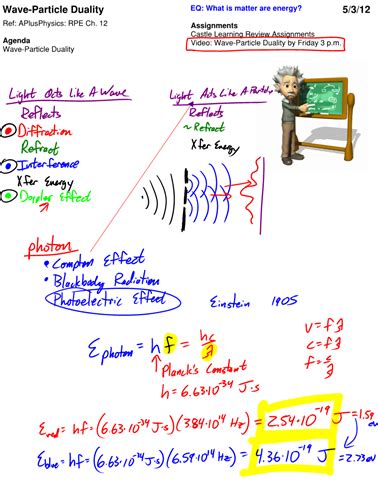 Wave-Particle Duality
EQ: What is matter are energy?
5/3/12
Ref: APlusPhysics: RPE Ch. 12
Assignments
Castle Learning Review Assignments
Agenda
Video: Wave-Particle Duality by Friday 3 p.m.
Wave-Particle Duality
Light Acts Like A Wave
Light Acts Like A Particle
Reflects
Reflects
Diffraction
~ Refract
Refract
Xfer Energy
Interference
Xfer Energy
Doppler Effect
photon
• Compton Effect
• Blackbody Radiation
Photoelectric Effect
Einstein 1905
v = fλ
c = fλ
f = c/λ
ε photon = hf = hc/λ
Planck's Constant
h = 6.63·10^-34 J·s
ε red = hf = (6.63·10^-34 J·s)(3.84·10^14 Hz) = 2.54·10^-19 J = 1.59
ε blue = hf = (6.63·10^-34 J·s)(6.59·10^14 Hz) = 4.36·10^-19 J = 2.73 eV